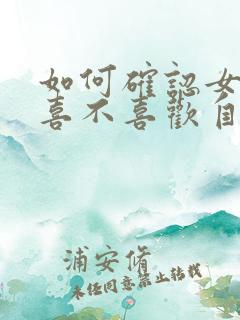 如何確認女
喜不喜歡自
浦安脩
未经同意禁止转载